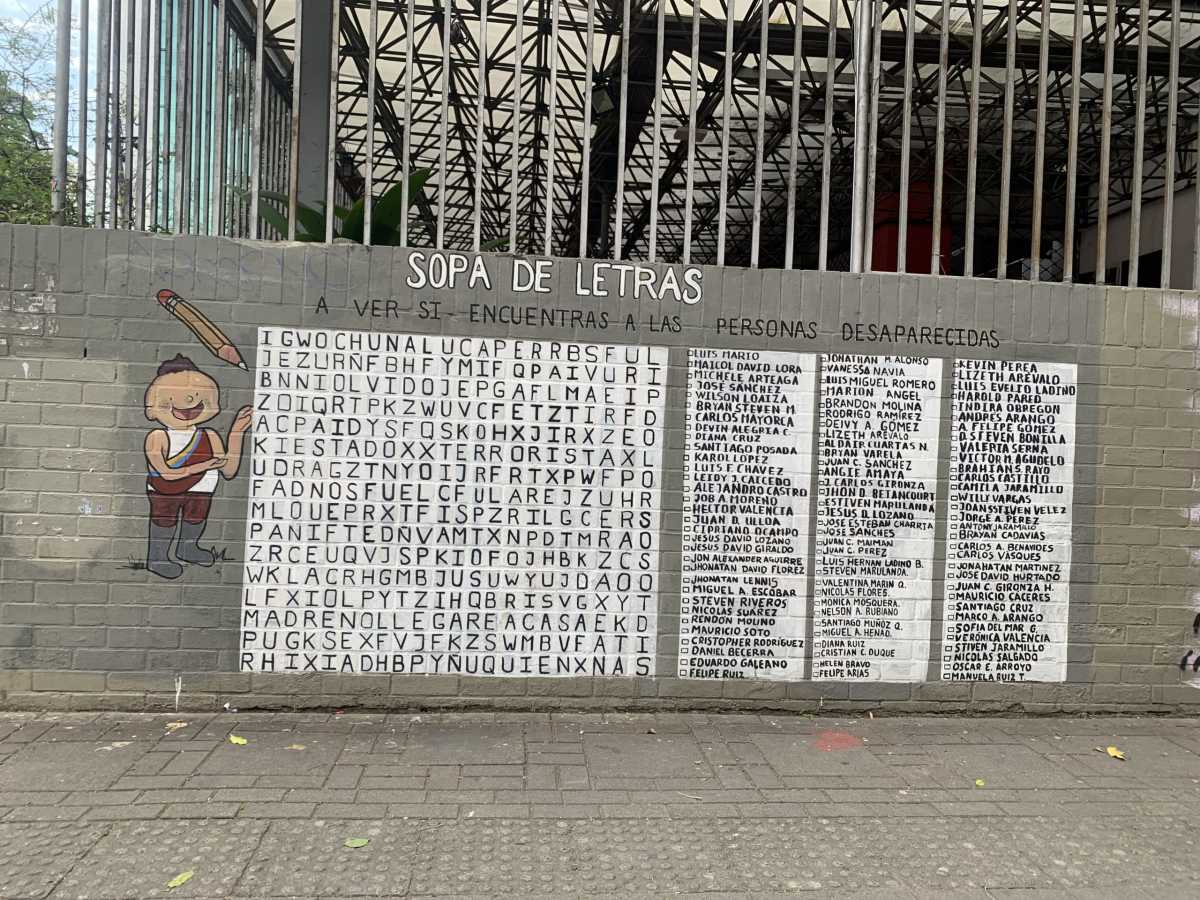 SOPA DE LETRAS
A VER SI ENCUENTRAS A LAS PERSONAS DESAPARECIDAS
IGWOCHUNALUCAPERRBSFUL
JEZURÑFBHFYMIFQPAIVURI
BNNIOLVIDOJEPGAFLMAEIP
ZOIQRTPKZWUVCFETZTIRFD
ACPAIDYSFQSKOHXJIRXZEO
KIESTADOXXTERRORISTAXL
UDRAGZTNYOIJRFRTXPWFPO
FADNOSFUELCFULAREJZUHR
MLOUEPRXTFISPZRILGCERS
PANUFTEDÑVAMTXNPDTMRAO
ZRCEUQVJSPKIDFOJHBKZCS
WKLACRHGMBJUSUWYUJDAOO
LFXIOLPYTZIHQBRISVGXYT
MADRENOLLEGAREACASAEKD
PUGKSEXFVJFKZSWMBVFATI
RHIXIADHBPYÑUQUIENXNAS
LUIS MARIO
MAICOL DAVID LORA
MICHELE ARTEAGA
JOSÉ SÁNCHEZ
WILSON LOAIZA
BRYAN STEVEN M.
CARLOS MAYORCA
DEVIN ALEGRIA C.
DIANA CRUZ
SANTIAGO POSADA
KAROL LÓPEZ
LUIS F. CHAVEZ
LEIDY J. CAICEDO
ALEJANDRO CASTRO
JOB A. MORENO
HECTOR VALENCIA
JUAN D. ULLOA
CIPRIANO OCAMPO
JESUS DAVID LOZANO
JESUS DAVID GIRALDO
JON ALEXANDER AGUIRRE
JHONATAN DAVID FLOREZ
JHONATAN LENNIS
MIGUEL A. ESCOBAR
STEVEN RIVEROS
NICOLAS SUAREZ
RENDON MOLINO
MAURICIO SOTO
CRISTOPHER RODRÍGUEZ
DANIEL BECERRA
EDUARDO GALEANO
FELIPE RUIZ
JONATHAN M. ALONSO
VANESSA NAVIA
LUIS MIGUEL ROMERO
MARION ANGEL
BRANDON MOLINA
RODRIGO RAMÍREZ
DEIVY A. GÓMEZ
LIZETH ARÉVALO
ALDAIR CUARTAS N.
BRYAN VARELA
JUAN C. SÁNCHEZ
ANGIE AMAYA
J. CARLOS GIRONZA
JHON D. BETANCOURT
ESTIVEN MARULANDA
JESUS D. LOZANO
JOSE ESTEBAN CHARRIA
JOSE SANCHES
JUAN C. MAIMAN
JUAN C. PEREZ
LUIS HERNAN LADINO B.
STEVEN MARULANDA.
VALENTINA MARIN Q.
NICOLAS FLORES.
MONICA MOSQUERA.
NELSON A. RUBIANO
SANTIAGO MUÑOZ Q.
MIGUEL A. HENAO.
DIANA RUIZ
CRISTIAN C. DUQUE
HELEN BRAVO
FELIPE ARIAS
KEVIN PEREA
LIZETH ARÉVALO
LUIS EVELIO LADINO
HAROLD PARED
INDIRA OBREGON
ANDRÉS ARANGO
A. FELIPE GÓMEZ
D. STEVEN BONILLA
VALERIA SERNA
VICTOR M. AGUDELO
BRAHIAN S. RAYO
CARLOS CASTILLO
CAMILA JARAMILLO
WILLY VARGAS
JOAN STIVEN VELEZ
JORGE A. PÉREZ
ANTONY JARAMILLO
BRAYAN CADAVIAS
CARLOS A. BENAVIDES
CARLOS VASQUES
JONAHATAN MARTINEZ
JOSE DAVID HURTADO
JUAN C. GIRONZA H.
MAURICIO CÁCERES
SANTIAGO CRUZ
MARCO A. ARANGO
SOFIA DEL MAR G.
VERÓNICA VALENCIA
STIVEN JARAMILLO
NICOLAS SALGADO
OSCAR E. ARROYO
MANUELA RUIZ T.